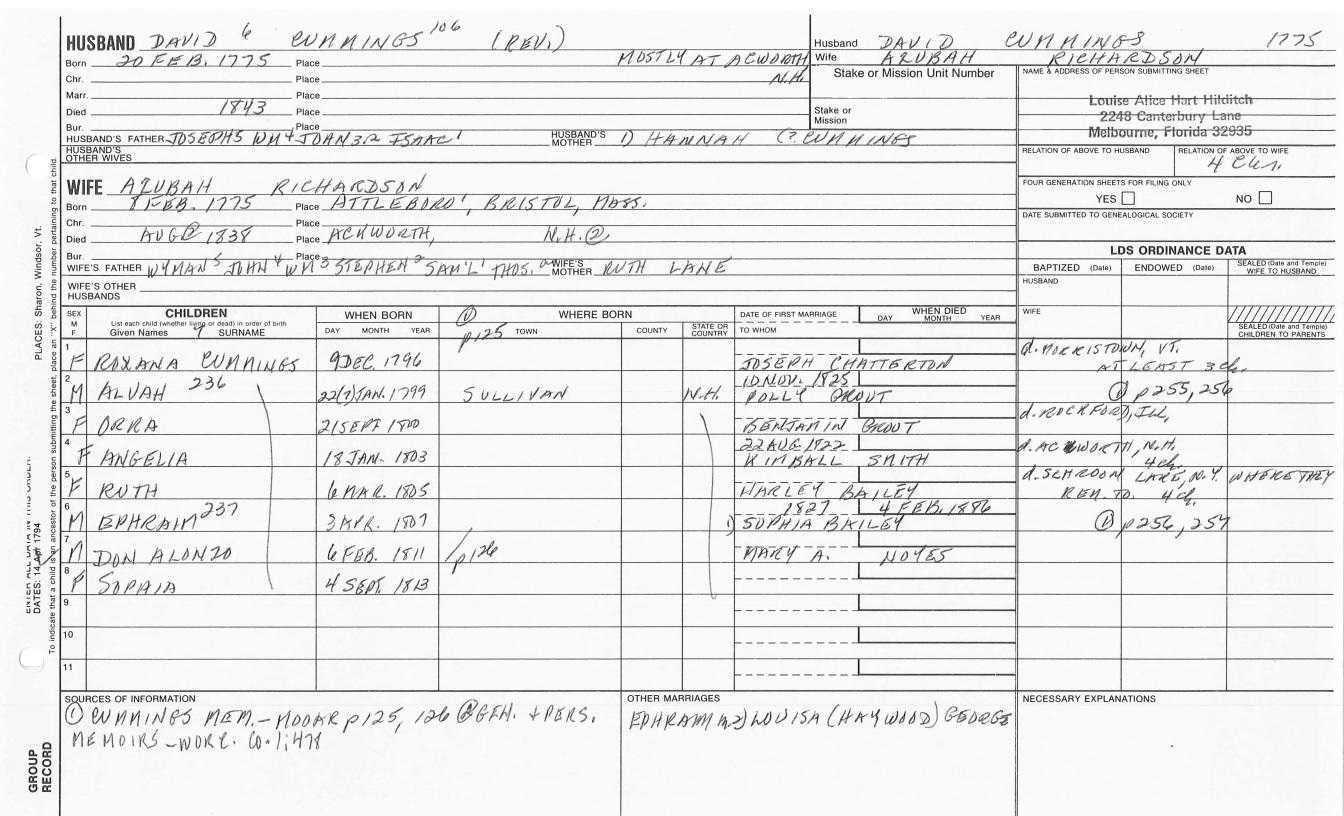 HUSBAND DAVID 6 CUMMINGS 106 (REV.)
Born 20 FEB. 1775 Place MOSTLY AT ACWORTH
Chr. Place N.H.
Marr. Place
Died 1843 Place
Bur. Place
HUSBAND'S FATHER JOSEPH5 WM4 JOHN3,2 ISAAC1 HUSBAND'S MOTHER 1) HANNAH (? CUMMINGS
HUSBAND'S OTHER WIVES
WIFE AZUBAH RICHARDSON
Born 8 FEB. 1775 Place ATTLEBORO', BRISTOL, MASS.
Chr. Place
Died AUG② 1838 Place ACKWORTH, N.H.②
Bur. Place
WIFE'S FATHER WYMAN5 JOHN4 WM3 STEPHEN2 SAM'L1 THOS. WIFE'S MOTHER RUTH LANE
WIFE'S OTHER HUSBANDS
Husband DAVID CUMMINGS 1775
Wife AZUBAH RICHARDSON
Stake or Mission Unit Number
Stake or Mission
NAME & ADDRESS OF PERSON SUBMITTING SHEET
Louise Alice Hart Hilditch
2248 Canterbury Lane
Melbourne, Florida 32935
RELATION OF ABOVE TO HUSBAND RELATION OF ABOVE TO WIFE
4 C
FOUR GENERATION SHEETS FOR FILING ONLY
YES NO
DATE SUBMITTED TO GENEALOGICAL SOCIETY
LDS ORDINANCE DATA
BAPTIZED (Date) ENDOWED (Date) SEALED (Date and Temple) WIFE TO HUSBAND
HUSBAND
WIFE
SEALED (Date and Temple) CHILDREN TO PARENTS
SEX M F CHILDREN WHEN BORN ① WHERE BORN DATE OF FIRST MARRIAGE WHEN DIED
List each child (whether living or dead) in order of birth
Given Names 7 SURNAME DAY MONTH YEAR p125 TOWN COUNTY STATE OR COUNTRY TO WHOM DAY MONTH YEAR
1 F ROXANA CUMMINGS 9 DEC. 1796 JOSEPH CHATTERTON d. MORRISTOWN, VT. AT LEAST 3 ch.
2 M ALVAH 236 22(?) JAN. 1799 SULLIVAN N.H. 10 NOV. 1825 POLLY GROUT ① p255, 256
3 F ORRA 21 SEPT 1800 BENJAMIN GROUT d. ROCKFORD, ILL,
4 F ANGELIA 18 JAN. 1803 22 AUG 1822 KIMBALL SMITH d. ACWORTH, N.H. 4 ch.
5 F RUTH 6 MAR. 1805 HARLEY BAILEY d. SCHROON LAKE, N.Y. WHERE THEY REM. TO. 4 ch.
6 M EPHRAIM 237 3 APR. 1807 1827 4 FEB. 1886 1) SOPHIA BAILEY ① p256, 257
7 M DON ALONZO 6 FEB. 1811 p126 MARY A. NOYES
8 F SOPHIA 4 SEPT. 1813
9
10
11
SOURCES OF INFORMATION
① CUMMINGS MEM. – MOOAR p125, 126 ② GEN. + PERS.
MEMOIRS – WORC. Co. 1; 478
OTHER MARRIAGES
EPHRAIM m2) LOUISA (HAYWOOD) GEORGE
NECESSARY EXPLANATIONS
PLACES: Sharon, Windsor, Vt.
ENTER ALL DATA IN THIS ORDER:
DATES: 14 Apr 1794
To indicate that a child is an ancestor of the person submitting the sheet, place an "X" behind the number pertaining to that child.
GROUP RECORD